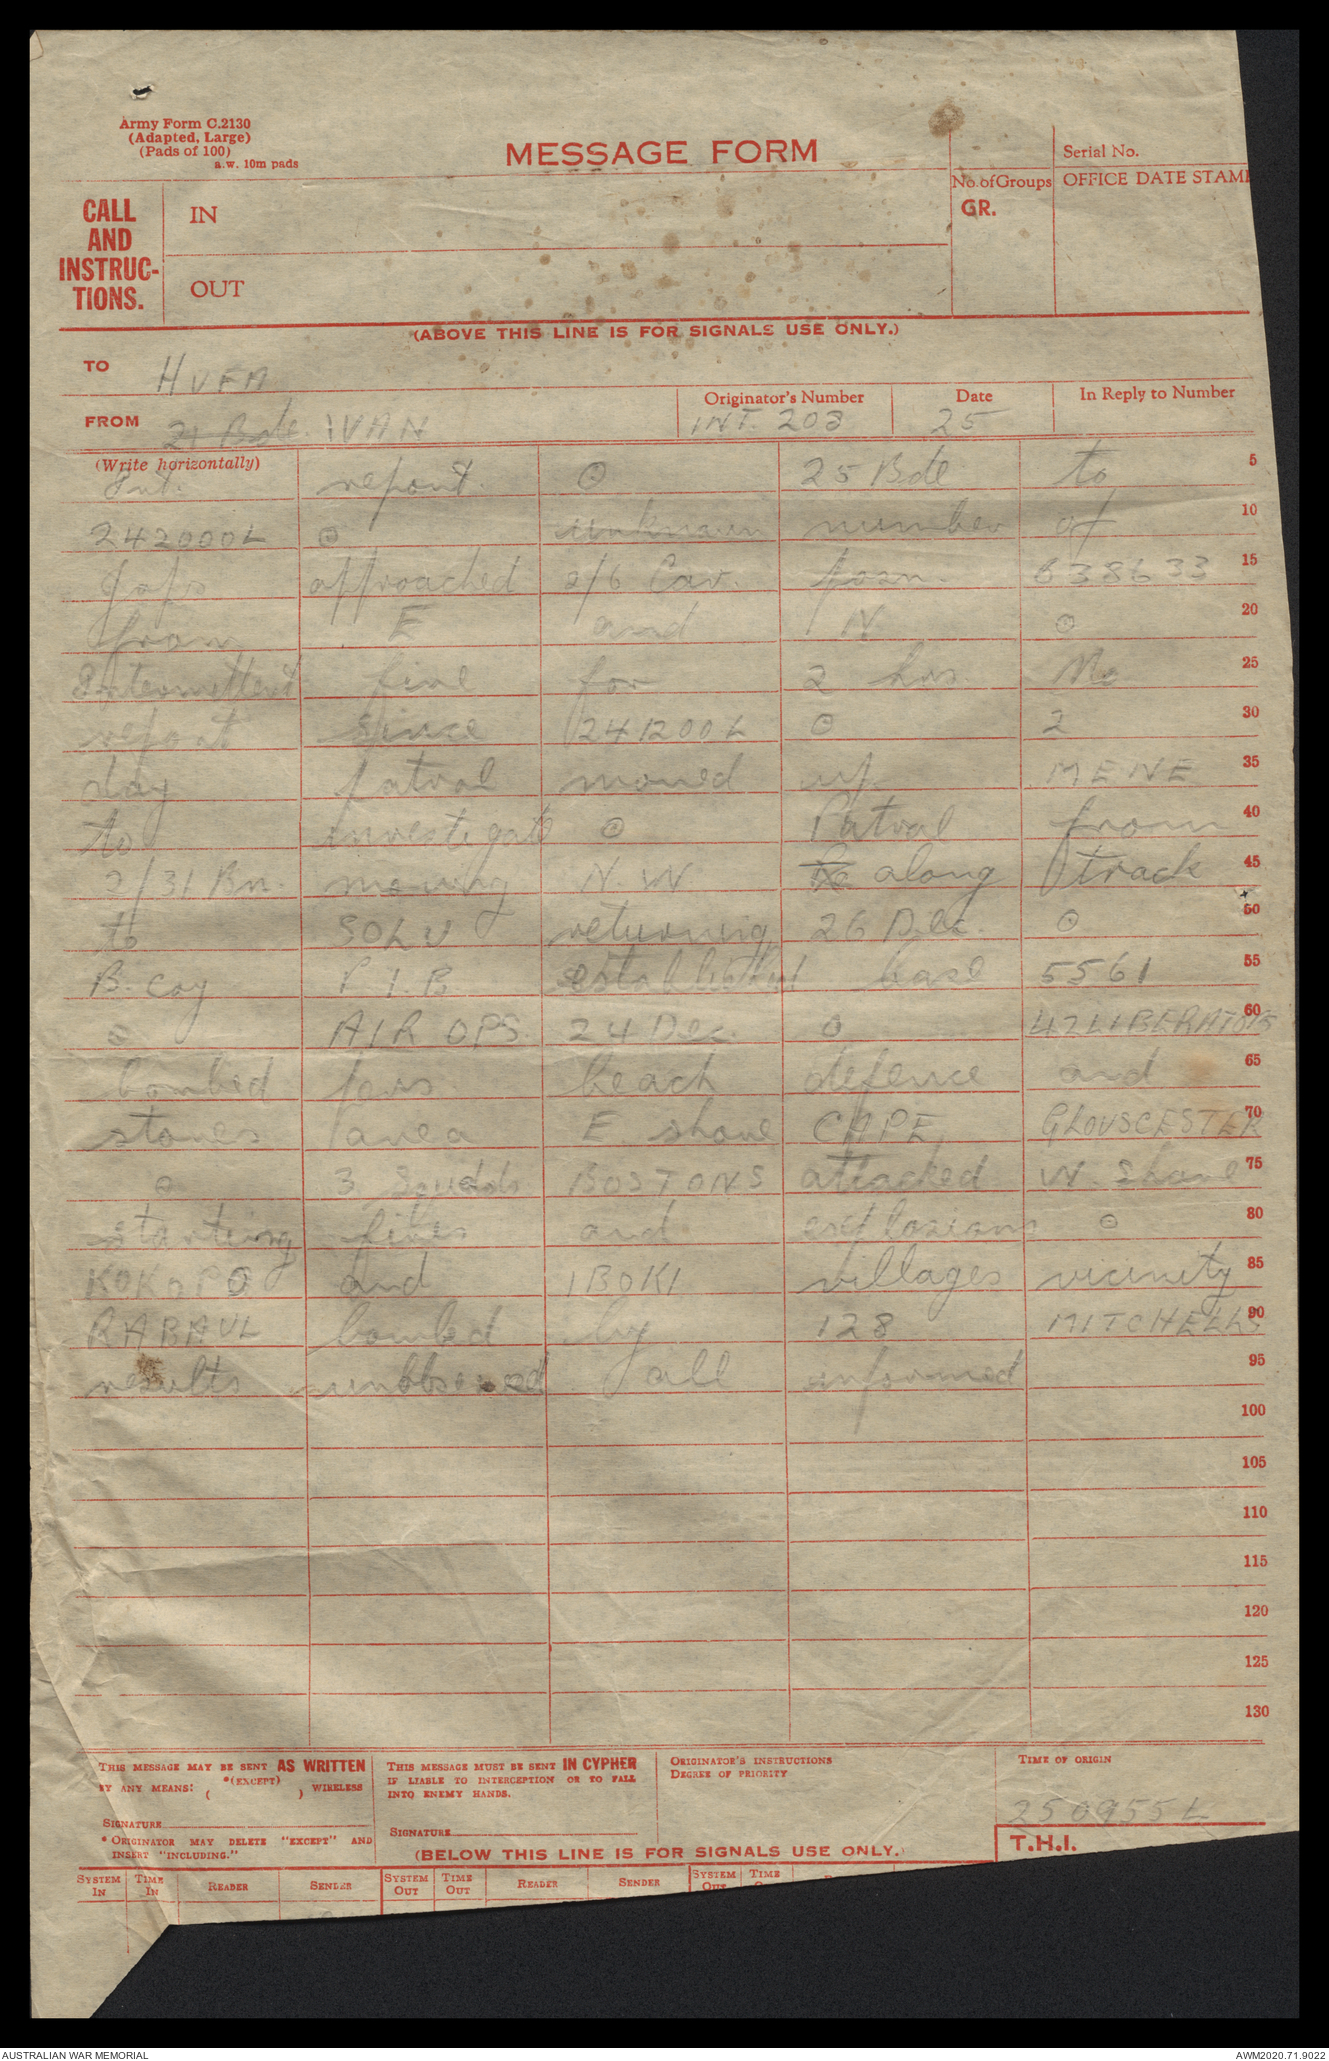 Army Form C.2130
(Adapted, Large)
(Pads of 100)
a.w. 10m pads
MESSAGE FORM
Serial No.
No. of Groups
GR.
OFFICE DATE STAMP
CALL
AND
INSTRUC-
TIONS.
IN
OUT
(ABOVE THIS LINE IS FOR SIGNALS USE ONLY.)
TO
FROM 21 Bde. IVAN
Originator's Number
INT. 203
Date
25
In Reply to Number
(Write horizontally)
Int. report. ⊙ 25 Bde to 5
242000L ⊙ unknown number of 10
Japs approached 2/6 Cav. posn. 638633 15
from E and N ⊙ 20
Intermittent fire for 2 hrs. No 25
report since 241200L ⊙ 2 30
day patrol moved up MENE 35
to investigate ⊙ Patrol from 40
2/31 Bn. moving N.W. along track 45
to SOLU returning 26 Dec. ⊙ 50
B. Coy P.I.B established base 5561 55
⊙ AIR OPS. 24 Dec. ⊙ 47 LIBERATORS 60
bombed pers. beach defence and 65
stores area E shore CAPE GLOUSCESTER 70
⊙ 3 Squads BOSTONS attacked W. Shore 75
starting fires and explosions ⊙ 80
KOKOPO and IBOKI villages vicinity 85
RABAUL bombed by 128 MITCHELLS 90
results unobserved all informed 95
100
105
110
115
120
125
130
THIS MESSAGE MAY BE SENT AS WRITTEN
BY ANY MEANS: ( *(EXCEPT) ) WIRELESS
SIGNATURE
* ORIGINATOR MAY DELETE "EXCEPT" AND
INSERT "INCLUDING."
THIS MESSAGE MUST BE SENT IN CYPHER
IF LIABLE TO INTERCEPTION OR TO FALL
INTO ENEMY HANDS.
SIGNATURE
ORIGINATOR'S INSTRUCTIONS
DEGREE OF PRIORITY
TIME OF ORIGIN
250955L
(BELOW THIS LINE IS FOR SIGNALS USE ONLY.)
T.H.I.
SYSTEM IN TIME IN READER SENDER SYSTEM OUT TIME OUT READER SENDER SYSTEM OUT TIME
AUSTRALIAN WAR MEMORIAL
AWM2020.71.9022